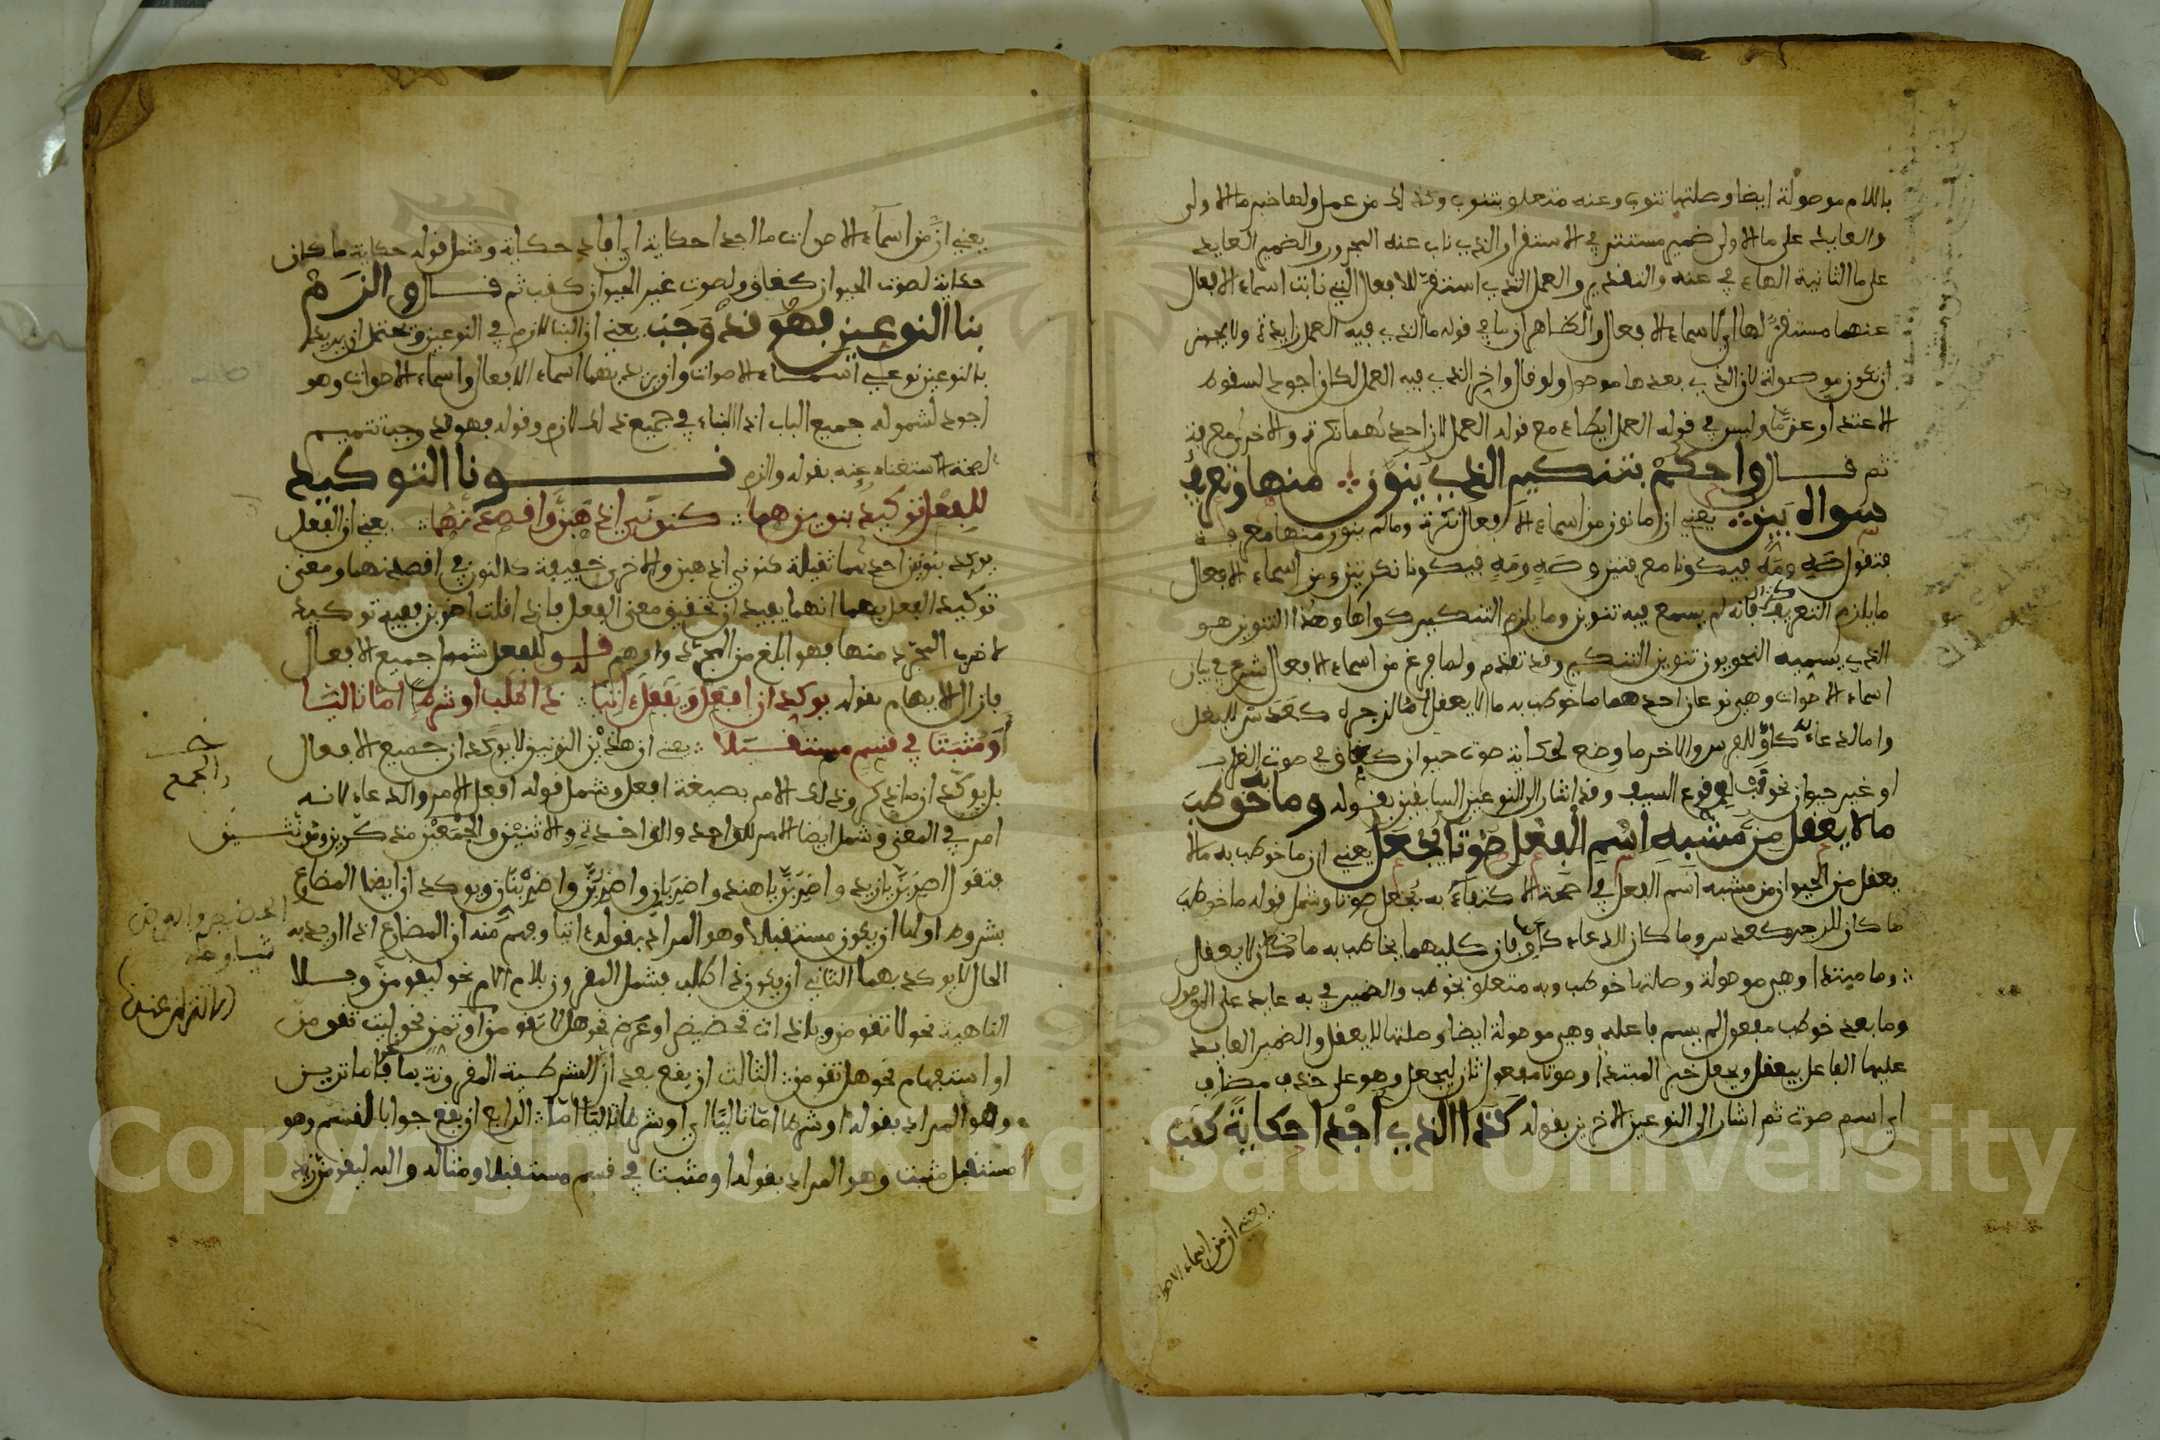 باللام موصولة ايضا وصلتها تنوب وعنه متعلق بتنوب وكذلك من عمل ولها خبر ما الاولى
والعايد على ما الاولى ضمير مستتر في الاستقرار الذي ناب عنه المجرور والضمير العايد
على ما الثانية الهاء في عنه والتقدير والعمل الذي استقر للافعال التي نابت اسماء الافعال
عنهما مستقر لها اي لاسماء الافعال والظاهر ان ما في قوله ما الذي فيه العمل زايدة ولا يجوز
ان تكون موصولة لان الذي بعدها موصول ولو قال واخر الذي فيه العمل لكان اجود لسقوط
الاعتذار عن ما وليس في قوله العمل ايطاء مع قوله العمل لان احدهما نكرة والاخر معرفة
ثم قال واحكم بتنكير الذي ينون منها وتعريف
سواه بين يعني ان ما نون من اسماء الافعال نكرة وما لم ينون منها معرفة
فتقول صه ومه فيكونا معرفتين وصه ومه فيكونا نكرتين ومن اسماء الافعال
ما يلزم التعريف كنزال فانه لم يسمع فيه تنوين وما يلزم التنكير كواها وهذا التنوين هو
الذي يسميه النحويون تنوين التنكير وقد تقدم ولما فرغ من اسماء الافعال شرع في بيان
اسماء الاصوات وهي نوعان احدهما ما خوطب به ما لا يعقل اما لزجره كعدس للبغل
واما لدعائه كاو للفرس والاخر ما وضع لحكاية صوت حيوان كغاق في صوت الغراب
او غير حيوان نحو قب لوقوع السيف وقد اشار الى النوعين السابقين بقوله وما به خوطب
ما لا يعقل من مشبه اسم الفعل صوتا يجعل يعني ان ما خوطب به ما لا
يعقل من الحيوان من مشبه اسم الفعل في صحة الاكتفاء به يجعل صوتا وشمل قوله ما خوطب
ما كان للزجر كعدس وما كان للدعاء كاو فان كليهما يخاطب به ما لا يعقل
وما مبتدا وهي موصولة وصلتها خوطب وبه متعلق بخوطب والضمير في به عايد على الموصول
وما بعد خوطب مفعول لم يسم فاعله وهي موصولة ايضا وصلتها لا يعقل والضمير العايد
عليها الفاعل بيعقل ويجعل خبر المبتدا وصوتا مفعول ثان ليجعل وهو على حذف مضاف
اي اسم صوت ثم اشار الى النوعين الاخرين بقوله كذا الذي اجدا حكاية كقب
يعني ان من اسماء الاصوا
يعني ان من اسماء الاصوات ما اجدا حكاية اي افاد حكاية وشمل قوله حكاية ما كان
حكاية لصوت الحيوان كغاق ولصوت غير الحيوان كقب ثم قال والزم
بنا النوعين فهو قد وجب يعني ان البنا لازم في النوعين ويحتمل ان يريد
بالنوعين نوعي اسماء الاصوات وان يريد بهما اسماء الافعال واسماء الاصوات وهو
اجود لشموله جميع الباب اذ البناء في جميع ذلك لازم وقوله فهو قد وجب تتميم
لصحة الاستغناء عنه بقوله والزم نونا التوكيد
للفعل توكيد بنونين هما كنوني اذهبن واقصدنهما يعني ان الفعل
يوكد بنونين احديهما ثقيلة كنوني اذهبن والاخرى خفيفة كالنون في اقصدنهما ومعنى
توكيد الفعل بهما انهما يفيدان تحقيق معنى الفعل فاذا قلت اضربن ففيه توكيد
لاضرب المجرد منها فهو ابلغ من المجرد واوهم قوله للفعل شمول جميع الافعال
فازال الايهام بقوله يوكدان افعل ويفعل اتيا ذا طلب او شرطا اما تاليا
او مثبتا في قسم مستقبلا يعني ان هذين النونين لا يوكدان جميع الافعال
بل يوكدان ما ذكر وذلك الامر بصيغة افعل وشمل قوله افعل الامر والدعاء لانه
امر في المعنى وشمل ايضا الامر للواحد والواحدة والاثنين والجمعين مذكرين ومونثين
فتقول اضربن يا زيد واضربن يا هند واضربان واضربن واضربنان ويوكدان ايضا المضارع
بشروط اولها ان يكون مستقبلا وهو المراد بقوله اتيا وفهم منه ان المضارع اذا اريد به
الحال لا يوكد بهما الثاني ان يكون ذا طلب فشمل المقرون بلام الامر نحو ليقومن وبلا
الناهية نحو لا تقومن وباداة تحضيض او عرض نحو هلا تقومن او تمن نحو ليت تقومن
او استفهام نحو هل تقومن الثالث ان يقع بعد ان الشرطية المقرونة بما نحو فاما ترين
وهو المراد بقوله او شرطا اما تاليا اي او شرطا تاليا اما الرابع ان يقع جوابا لقسم وهو
مستقبل مثبت وهو المراد بقوله او مثبتا في قسم مستقبلا ومثاله والله ليقومن زيد
الجمع
Copyright © King Saud University